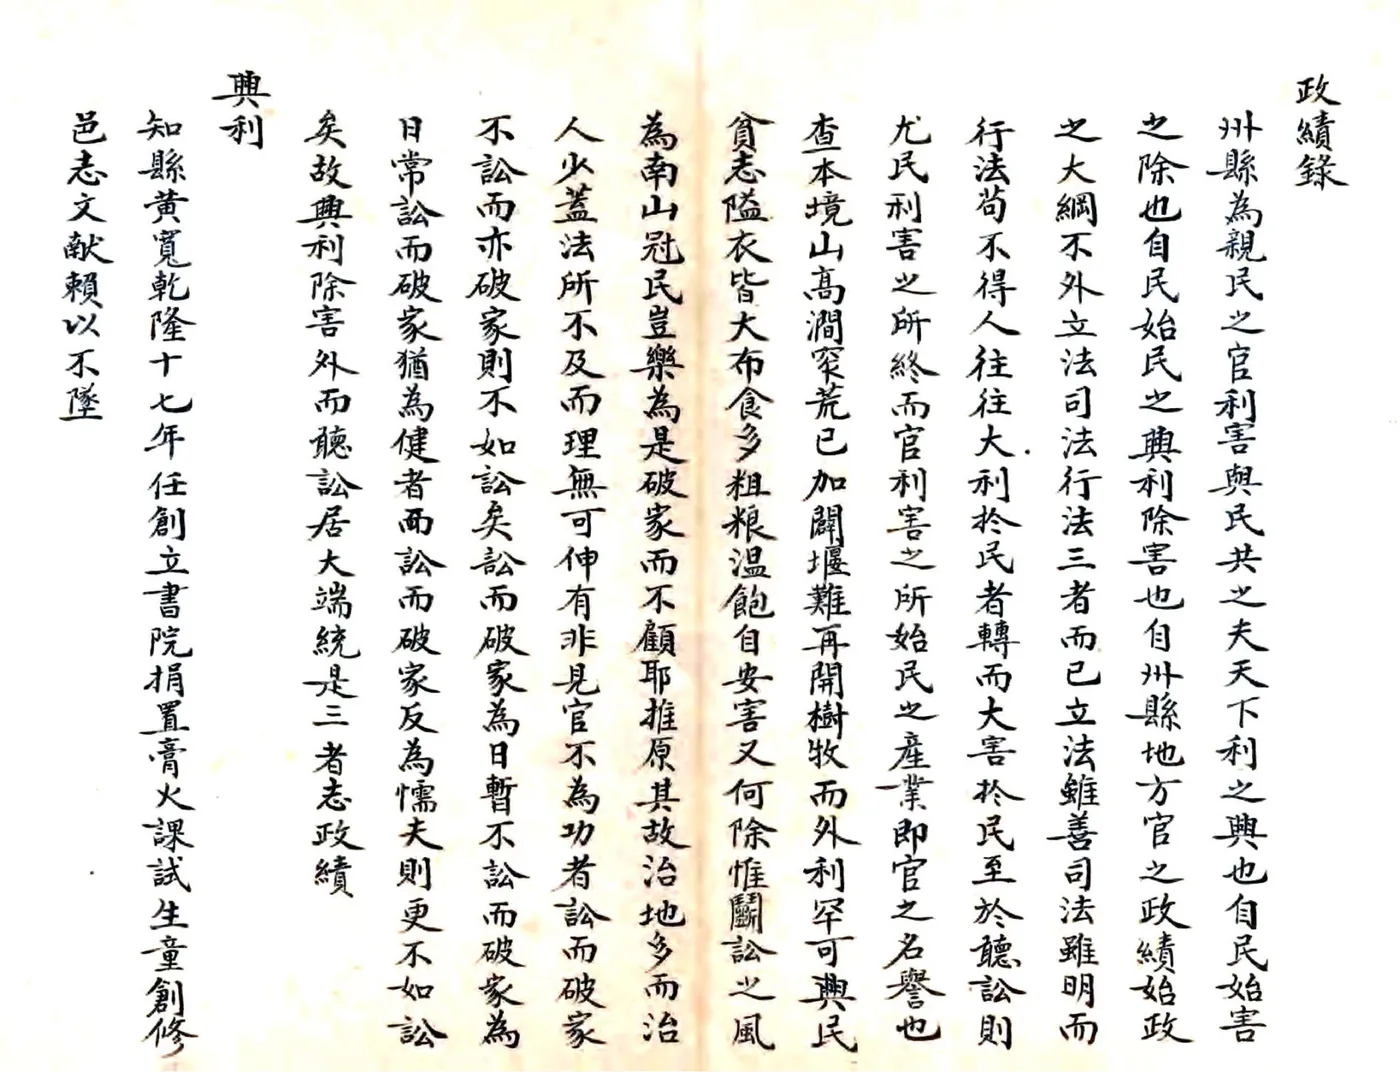 政績錄
州縣為親民之官利害與民共之夫天下利之興也自民始害
之除也自民始民之興利除害也自州縣地方官之政績始政
之大綱不外立法司法行法三者而已立法雖善司法雖明而
行法苟不得人往往大利於民者轉而大害於民至於聽訟則
尤民利害之所終而官利害之所始民之產業即官之名譽也
查本境山高澗窄荒已加闢堰難再開樹牧而外利罕可興民
貧志隘衣皆大布食多粗粮温飽自安害又何除惟鬭訟之風
為南山冠民豈樂為是破家而不顧耶推原其故治地多而治
人少蓋法所不及而理無可伸有非見官不為功者訟而破家
不訟而亦破家則不如訟矣訟而破家為日暫不訟而破家為
日常訟而破家猶為健者而訟而破家反為懦夫則更不如訟
矣故興利除害外而聽訟居大端統是三者志政績
興利
知縣黃寬乾隆十七年任創立書院捐置膏火課試生童創修
邑志文献賴以不墜